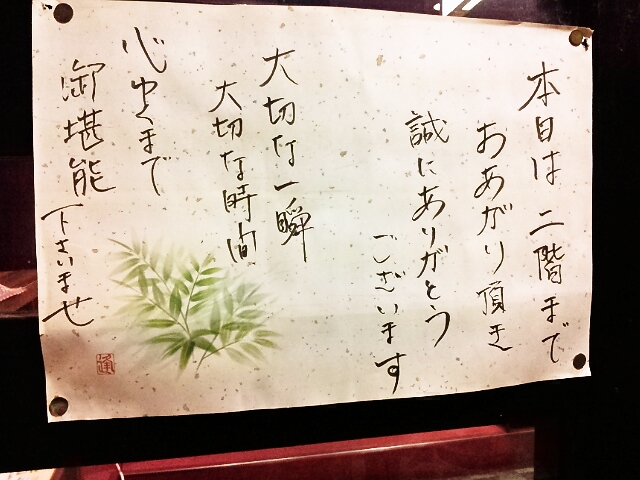 本日は二階まで
おあがり頂き
誠にありがとう
ございます
大切な一瞬
大切な時間
心ゆくまで
御堪能
下さいませ